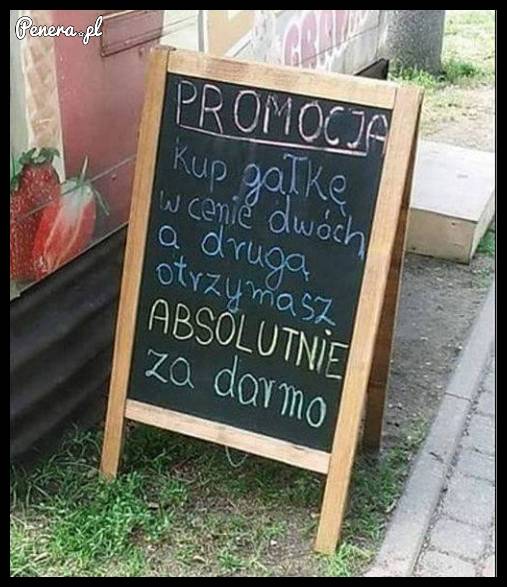 Penera.pl
PROMOCJA
kup gałkę
w cenie dwóch
a drugą
otrzymasz
ABSOLUTNIE
za darmo